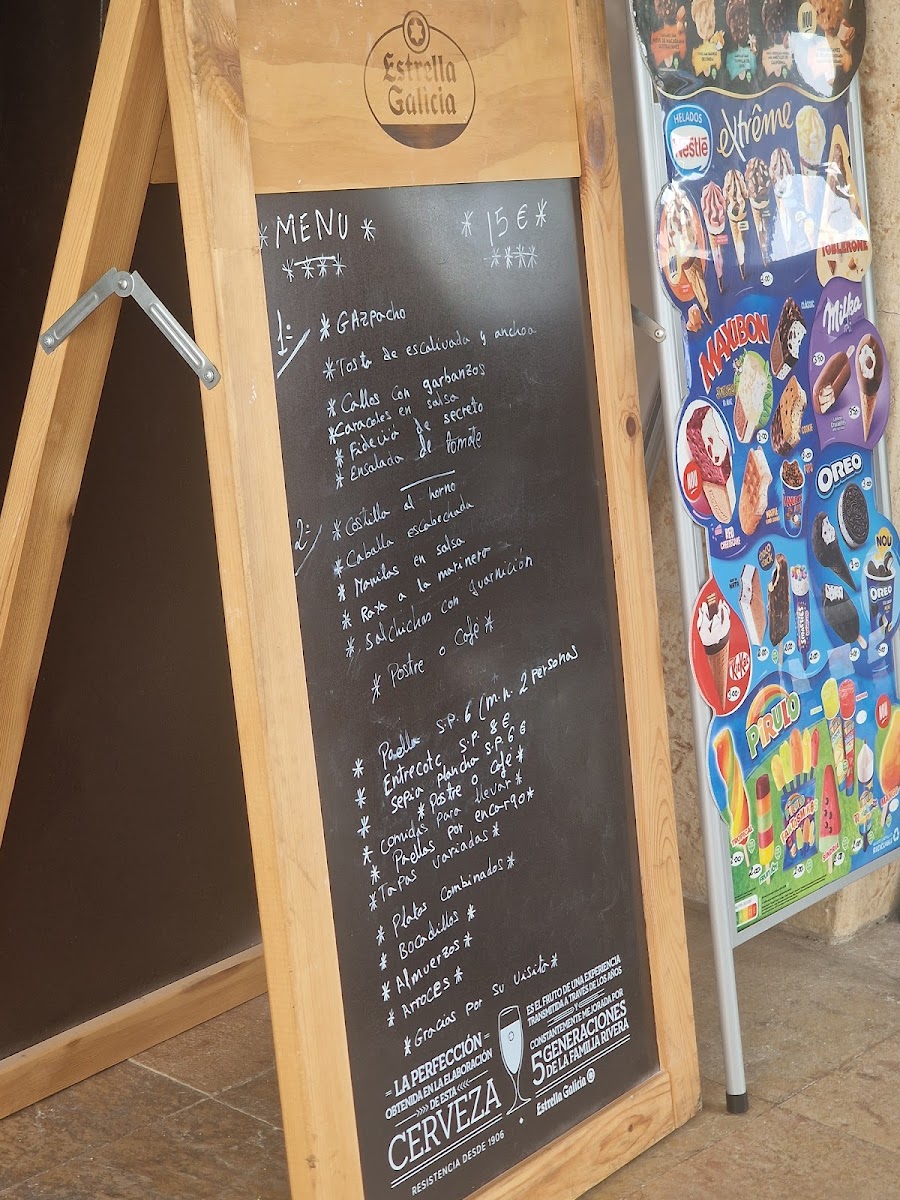 Estrella
Galicia
* MENU *
* 15 € *
****
****
1:
* GAzpacho
* Tosta de escalivada y anchoa
* Callos con garbanzos
* Caracoles en salsa
* Fideuá de secreto
* Ensalada de Tomate
2:
* Costilla al horno
* Caballa escabechada
* Manitas en salsa
* Raya a la marinera
* salchichas con guarnición
* Postre o Cafe *
* Paella S.P. 6 (min. 2 personas
* Entrecote S.P. 8 €
* Sepia plancha S.P. 6 €
* Postre o cafe *
* comidas para llevar *
* Paellas por encargo *
* Tapas variadas *
* Platos combinados *
* Bocadillos *
* Almuerzos *
* Arroces *
* Gracias por su visita *
= LA PERFECCIÓN =
OBTENIDA EN LA ELABORACIÓN
DE ESTA
CERVEZA
RESISTENCIA DESDE 1906
ES EL FRUTO DE UNA EXPERIENCIA
TRANSMITIDA A TRAVÉS DE LOS AÑOS
Y
CONSTANTEMENTE MEJORADA POR
5 GENERACIONES
DE LA FAMILIA RIVERA
Estrella Galicia
NOU
HELADOS
Nestlé
extrême
TOBLERONE
MAXIBON
Milka
OREO
NOU
NOU
OREO
KitKat
PIRULO
NOU